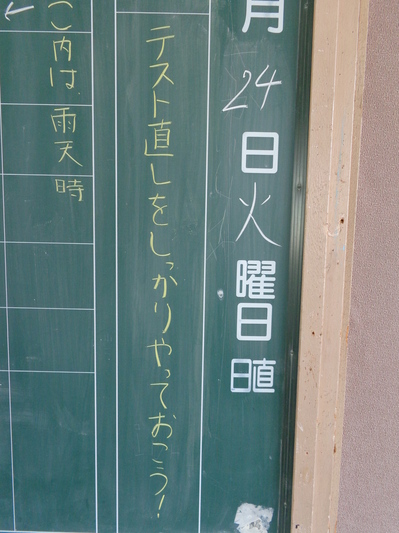 月24日火曜日 日直
テスト直しをしっかりやっておこう!
←
()内は、雨天時